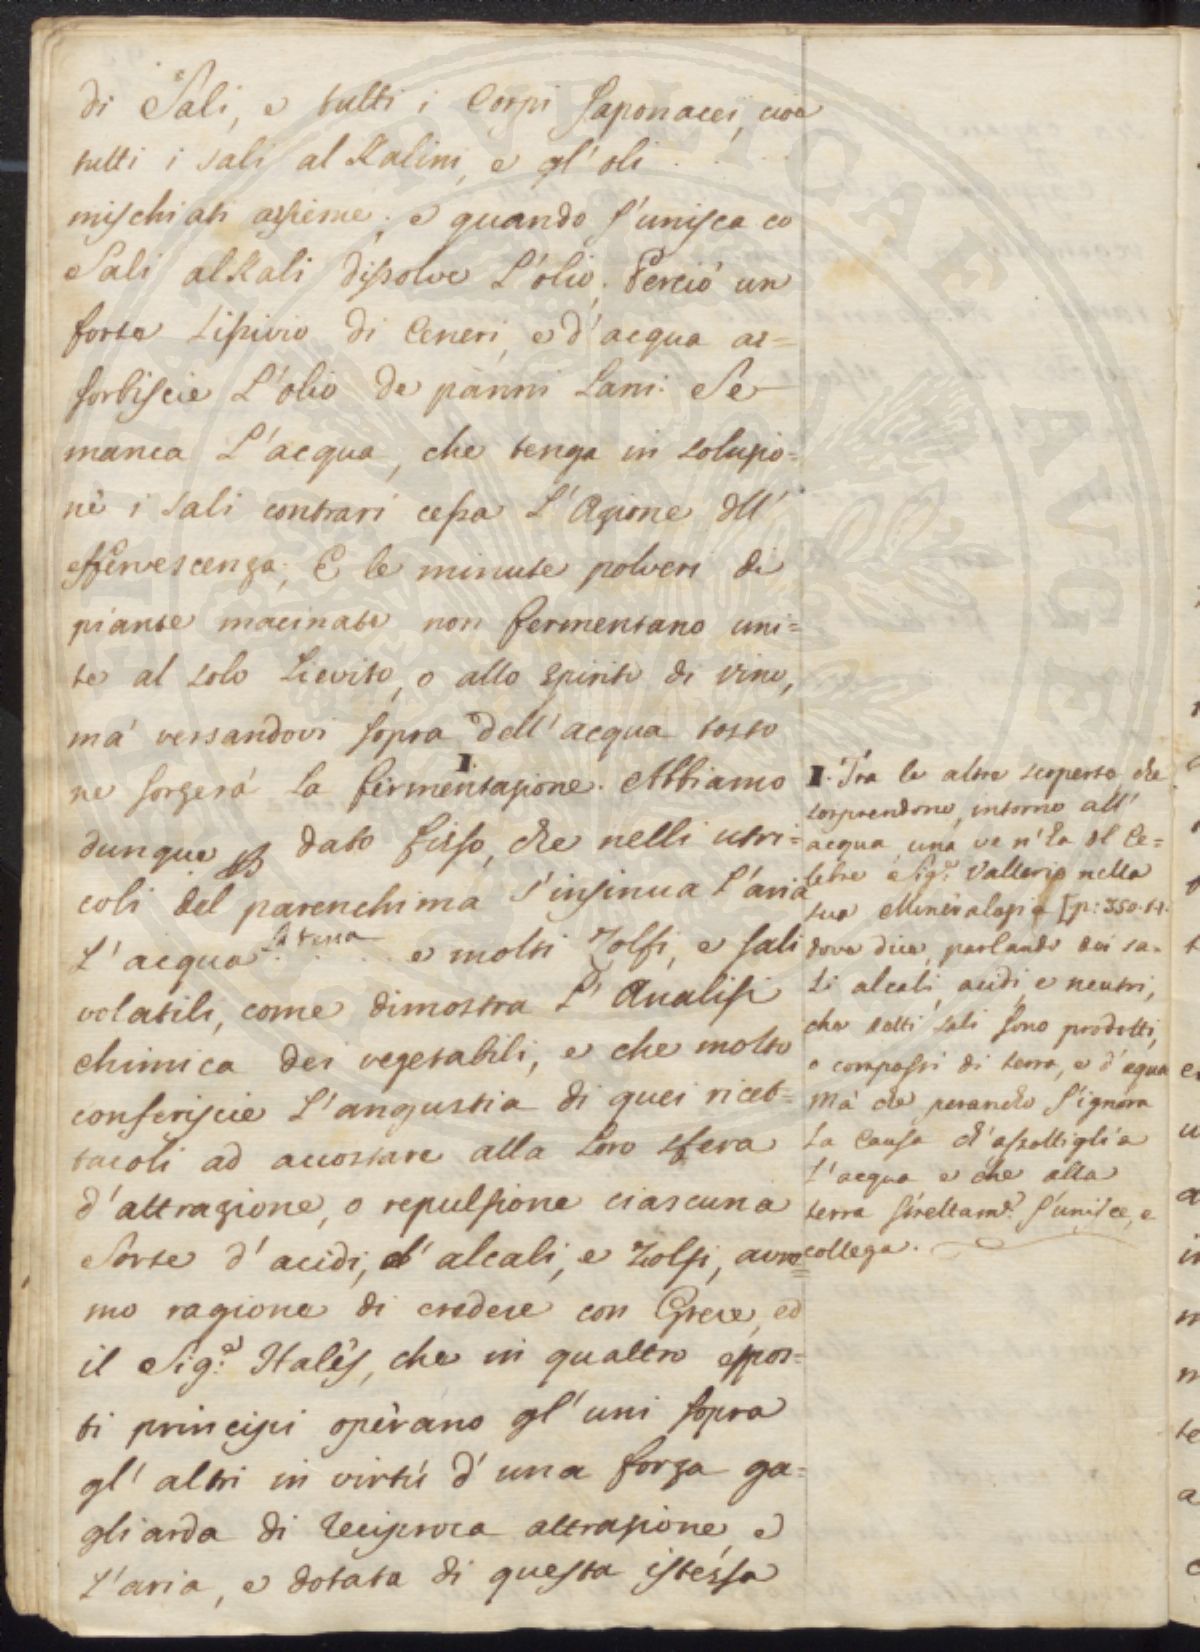 di Sali, e tutti i Corpi saponacei, cioè
tutti i sali alKalini, e gl'oli
mischiati assieme; e quando s'unisca co
Sali alKali dissolve l'olio. Perciò un
forte Lisivio di Ceneri, e d'acqua as=
sorbiscie l'olio de panni Lani. Se
manca l'acqua, che tenga in soluzio=
ne i sali contrari cessa l'Azione dell'
effervescenza; E le minute polveri di
piante macinate non fermentano uni=
te al solo Lievito, o allo spirito di vino,
mà versandovi sopra dell'acqua tosto
ne sorgerà la fermentazione. I. Abbiamo
dunque dato fisso, che nelli utri=
coli del parenchima s'insinua l'aria
l'acqua la terra e molti Zolfi, e sali
volatili, come dimostra l'Analisi
chimica dei vegetabili, e che molto
conferiscie l'angustia di quei ricet=
tacoli ad accostare alla loro sfera
d'attrazione, o repulsione ciascuna
Sorte d'acidi, d'alcali, e Zolfi, avre=
mo ragione di credere con Greve, ed
il Sig.e Halès, che in quattro espos=
ti principi operano gl'uni sopra
gl'altri in virtù d'una forza ga=
gliarda di reciproca attrazione, e
l'aria, e dotata di questa istessa
I. Tra le altre scoperte che
sorprendono, intorno all'
acqua, una ve n'ha del Ce=
lebre Sig.e Vallerio nella
sua Mineralogia [p: 350.
dove dice, parlando dei sa=
li alcali, acidi, e neutri,
che detti sali sono prodotti,
e composti di terra, e d'aqua
Mà che peranche s'ignora
la Causa ch'assottiglia
l'acqua e che alla
terra strettam.e s'unisce, e
collega.